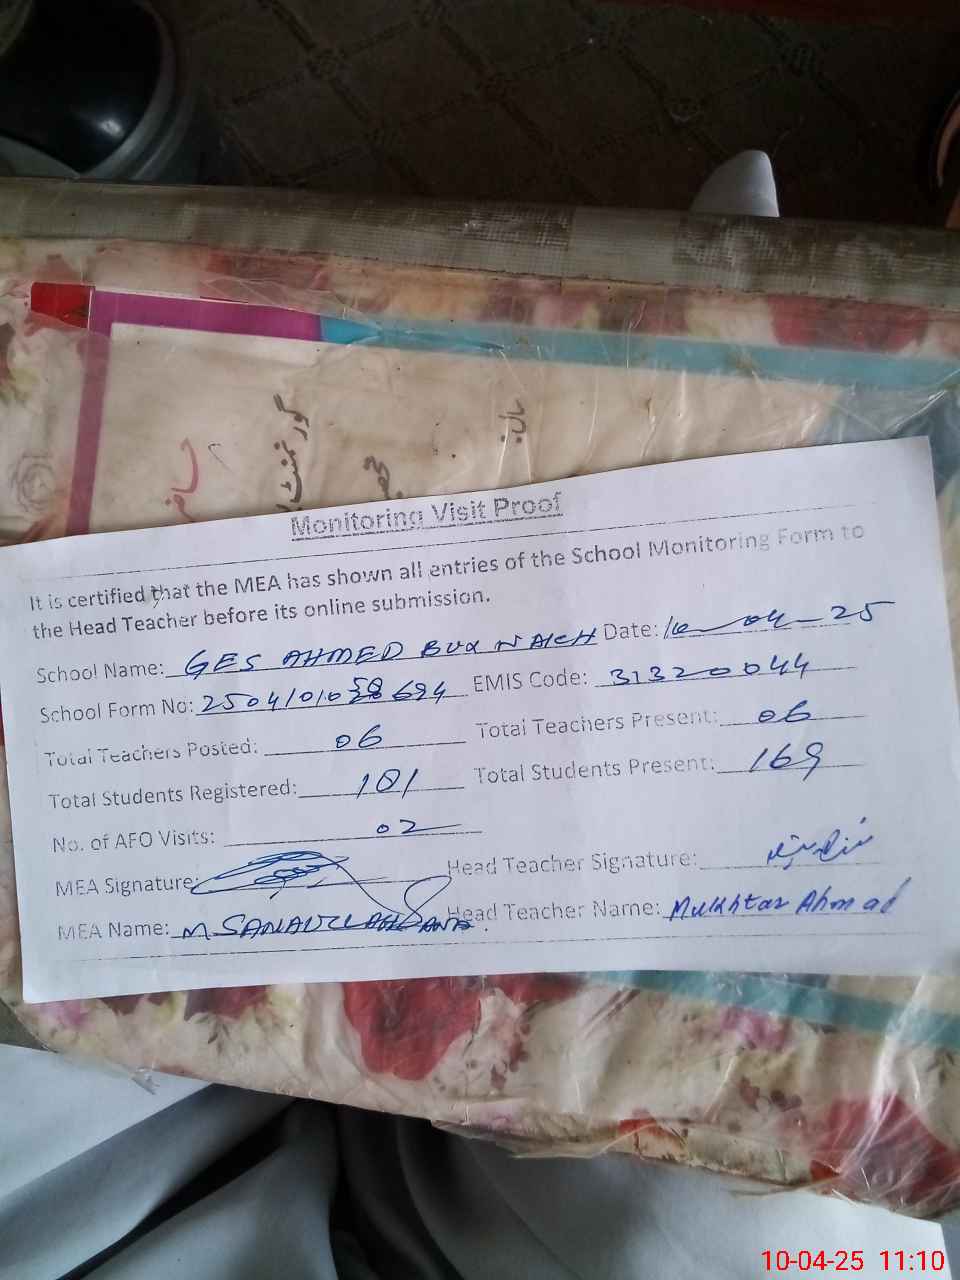 حاضر
گورنمنٹ
سال:
Monitoring Visit Proof
It is certified that the MEA has shown all entries of the School Monitoring Form to
the Head Teacher before its online submission.
School Name: GES AHMED BUX NAICH Date: 10-04-25
School Form No: 25041010 694 EMIS Code: 31320044
Total Teachers Posted: 06 Total Teachers Present: 06
Total Students Registered: 181 Total Students Present: 169
No. of AFO Visits: 02
MEA Signature: Head Teacher Signature:
MEA Name: M SANAULLAH Head Teacher Name: Mukhtar Ahmad
10-04-25 11:10